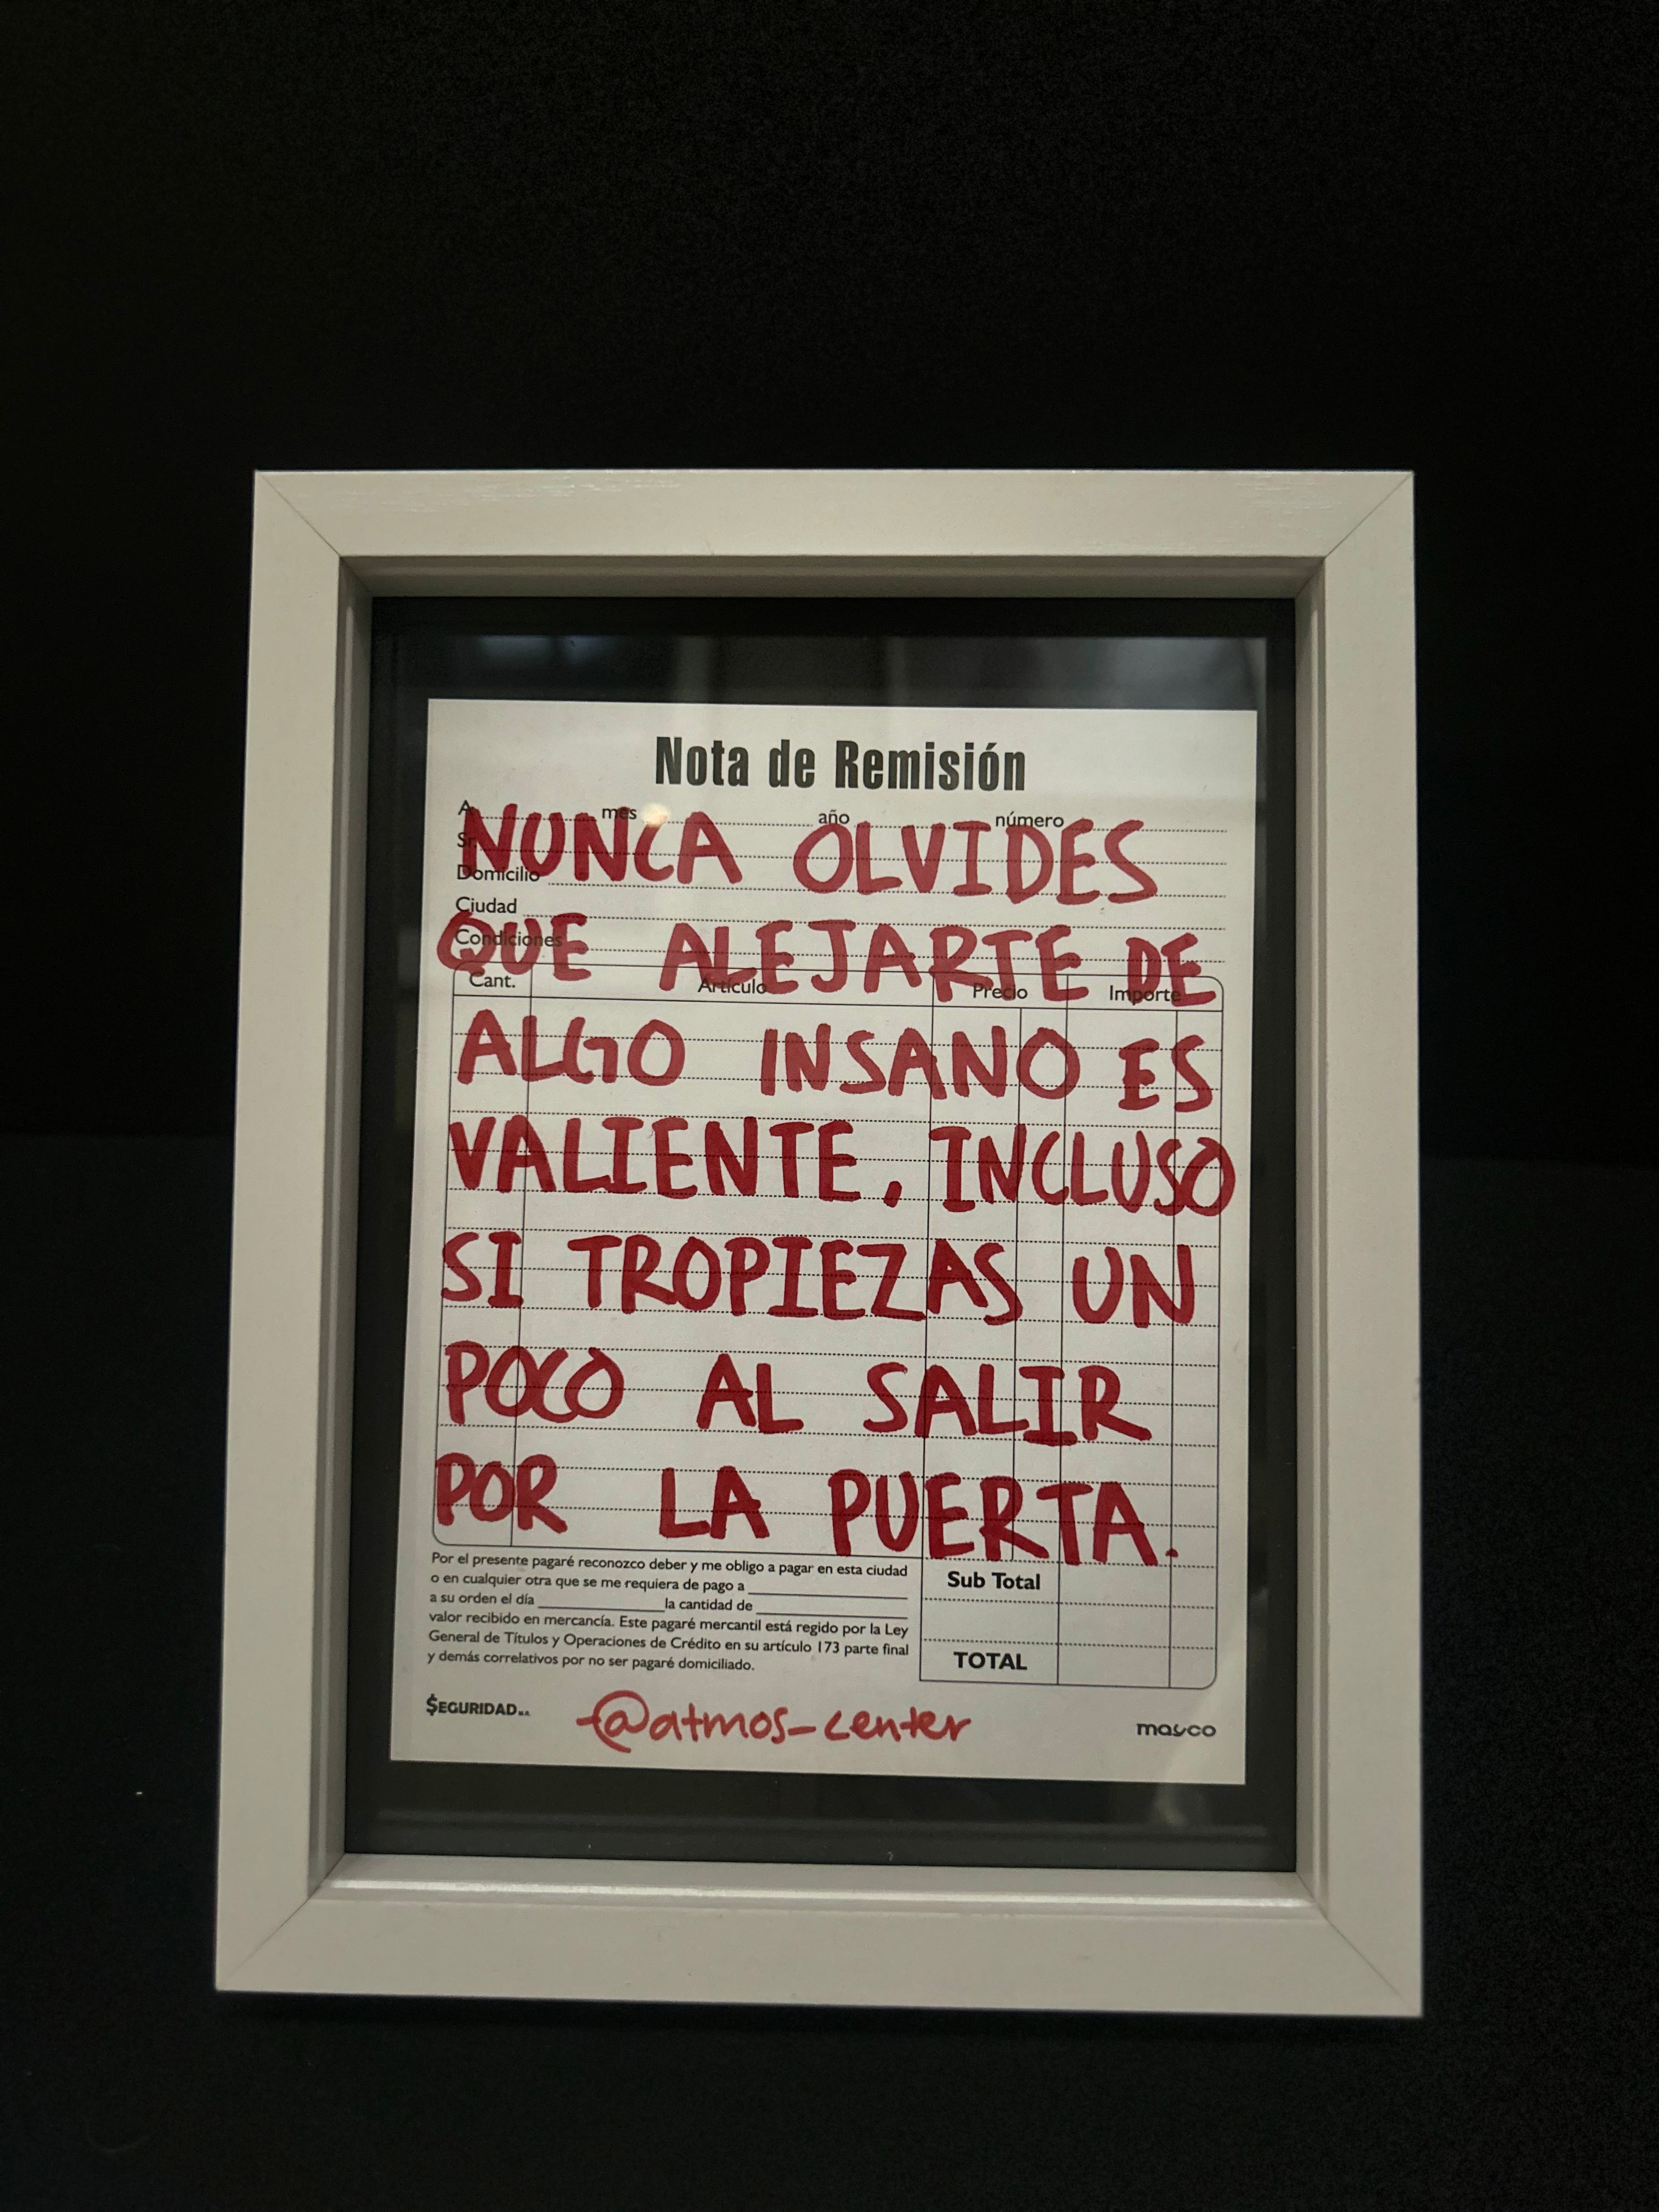 Nota de Remisión
A mes año número
Sr.
Domicilio
Ciudad
Condiciones
Cant. Artículo Precio Importe
NUNCA OLVIDES
QUE ALEJARTE DE
ALGO INSANO ES
VALIENTE, INCLUSO
SI TROPIEZAS UN
POCO AL SALIR
POR LA PUERTA.
Por el presente pagaré reconozco deber y me obligo a pagar en esta ciudad
o en cualquier otra que se me requiera de pago a
a su orden el día la cantidad de
valor recibido en mercancía. Este pagaré mercantil está regido por la Ley
General de Títulos y Operaciones de Crédito en su artículo 173 parte final
y demás correlativos por no ser pagaré domiciliado.
Sub Total
TOTAL
$EGURIDAD
@atmos_center
mayco